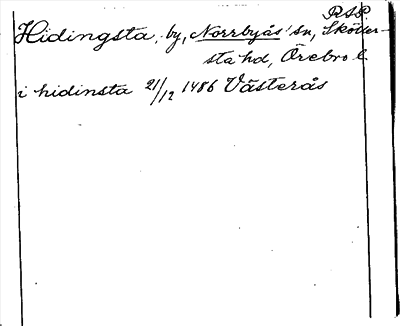 RAP.
Hidingsta, by, Norrbyås sn, Sköller-
sta hd, Örebro l.
i hidinsta 21/12 1486 Västerås